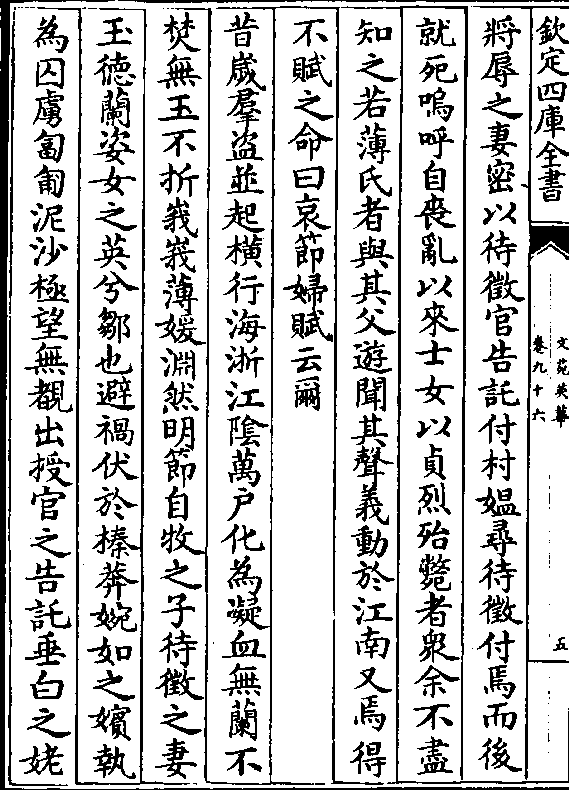 欽定四庫全書
文苑英華
卷九十六
五
將辱之妻密以待徵官告託付村媪尋待徵付焉而後
就死嗚呼自喪亂以來士女以貞烈殆斃者衆余不盡
知之若薄氏者與其父遊聞其聲義動於江南又焉得
不賦之命曰哀節婦賦云爾
昔歲羣盜並起橫行海浙江隂萬户化為凝血無蘭不
焚無玉不折峩峩薄媛淵然明節自牧之子待徵之妻
玉德蘭姿女之英兮鄒也避禍伏於榛莽婉如之嬪執
為囚虜匍匐泥沙極望無覩出授官之告託垂白之姥